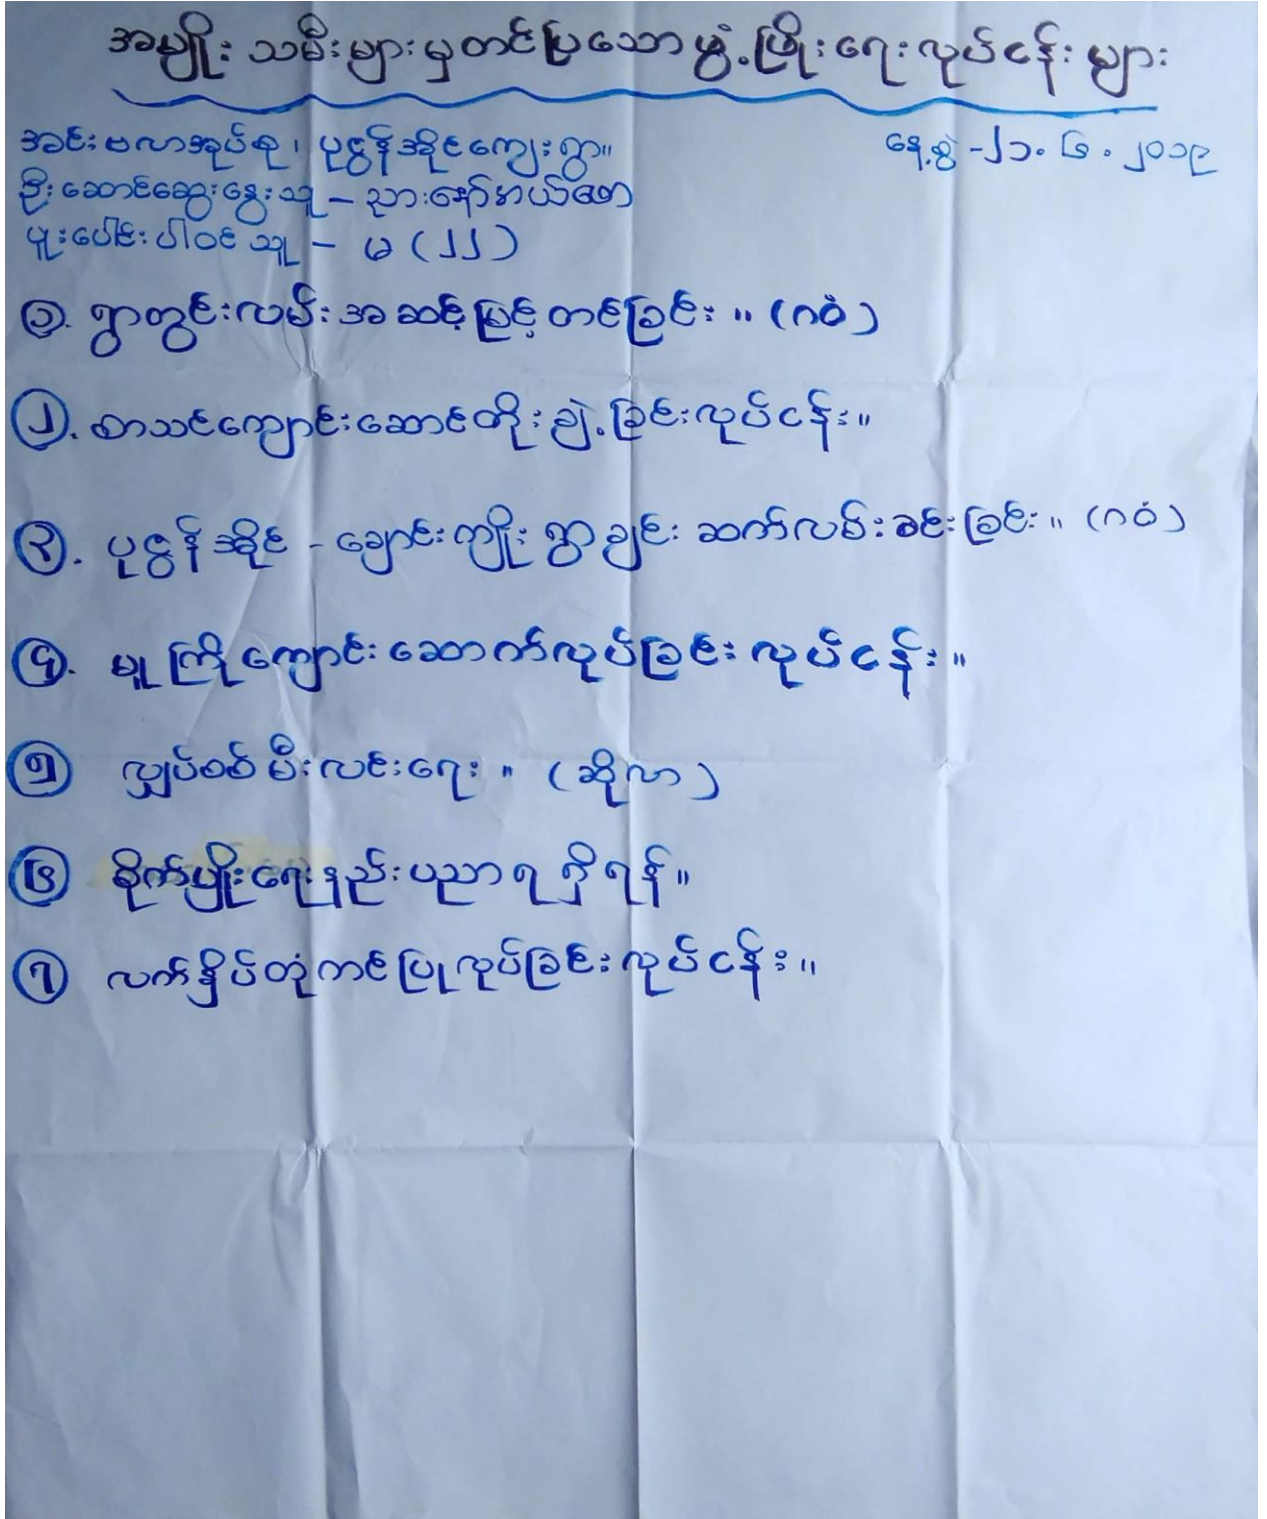 အမျိုးသမီးများမှတင်ပြသောဖွံ့ဖြိုးရေးလုပ်ငန်းများ
အင်းဗလာအုပ်စု၊ ပုဇွန်အိုင်ကျေးရွာ။ နေ့စွဲ -၂၁.၆.၂၀၁၉
ဦးဆောင်ဆွေးနွေးသူ - ညားနော်အယ်ဖော
ပူးပေါင်းပါဝင်သူ - မ (၂၂)
၁. ရွာတွင်းလမ်းအဆင့်မြှင့်တင်ခြင်း။ (ဂဝံ)
၂. စာသင်ကျောင်းဆောင်တိုးချဲ့ခြင်းလုပ်ငန်း။
၃. ပုဇွန်အိုင် - ချောင်းကျိုးရွာချင်းဆက်လမ်းခင်းခြင်း။ (ဂဝံ)
၄. မူကြိုကျောင်းဆောက်လုပ်ခြင်းလုပ်ငန်း။
၅ လျှပ်စစ်မီးလင်းရေး။ (ဆိုလာ)
၆ စိုက်ပျိုးရေးနည်းပညာရရှိရန်။
၇ လက်နှိပ်တုံကင်ပြုလုပ်ခြင်းလုပ်ငန်း။